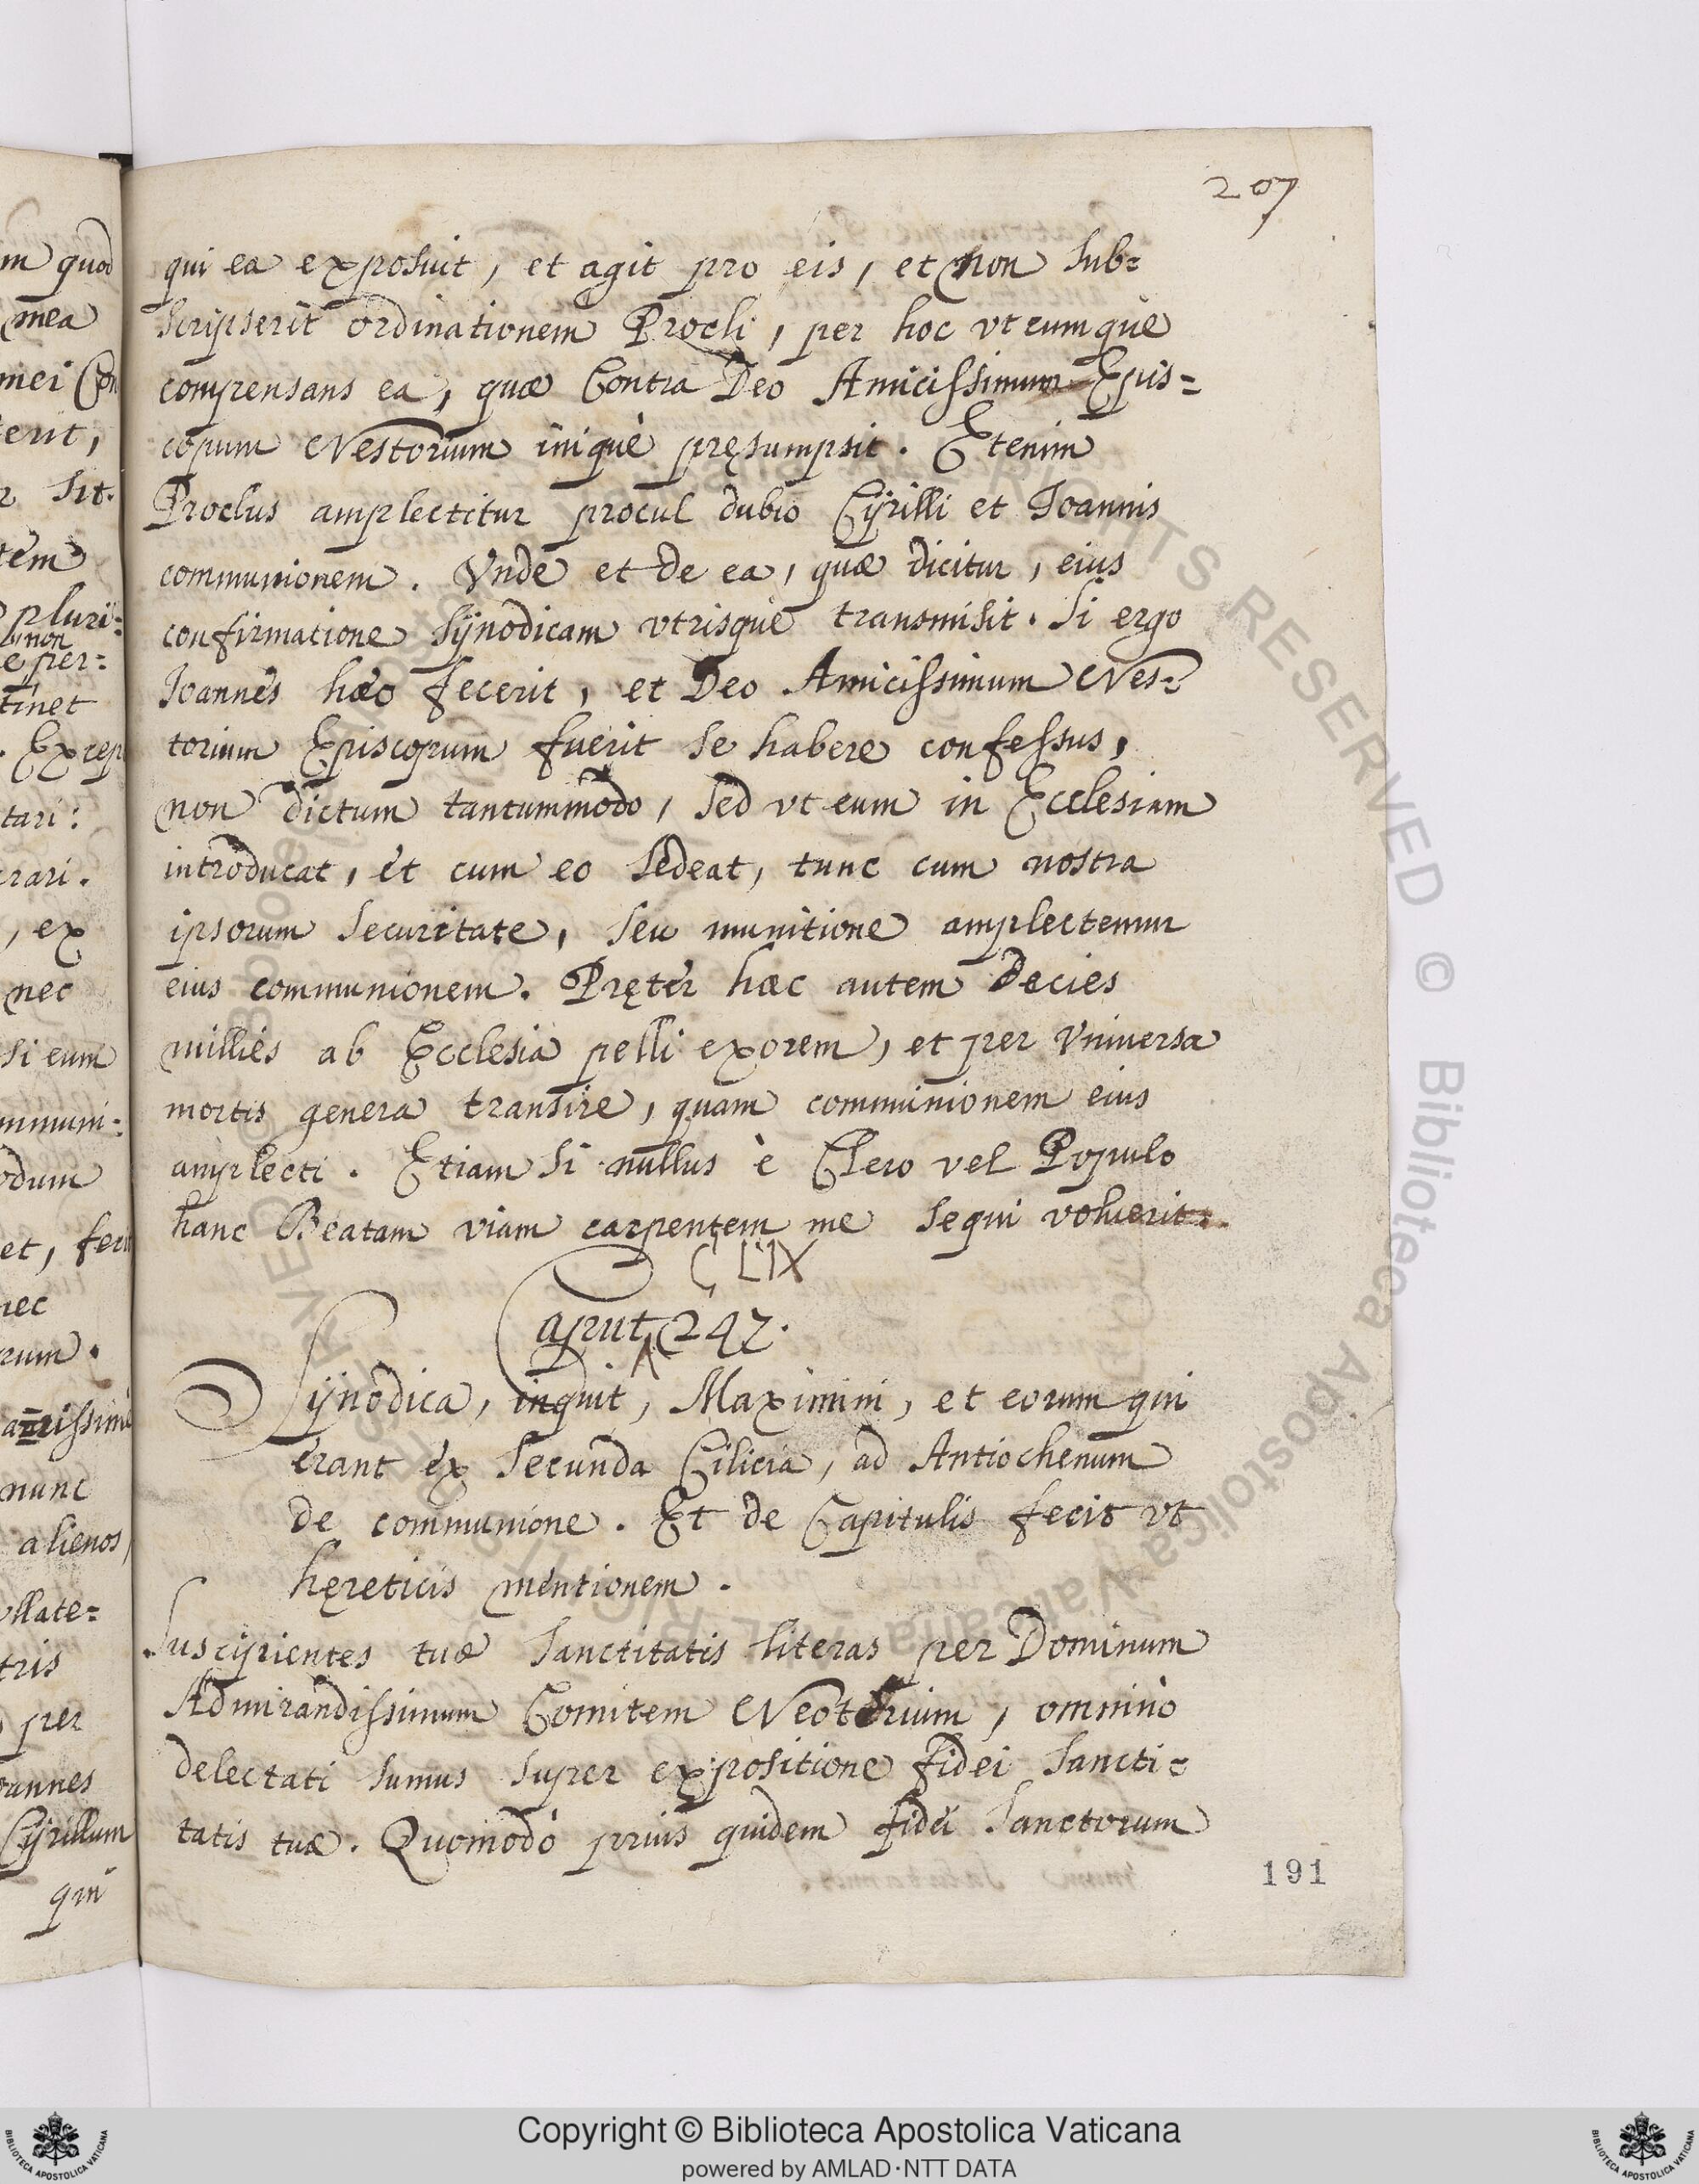 207
qui ea exposuit, et agit pro eis, et non sub=
scripserit ordinationem Procli, per hoc vtcumque
compensans ea, quæ Contra Deo Amicissimum Epis=
copum Nestorium iniquè pręsumpsit. Etenim
Proclus amplectitur procul dubio Cÿrilli et Joannis
communionem. Vnde et de ea, quæ dicitur, eius
confirmatione Sÿnodicam vtrisque transmisit. Si ergo
Joannes hæc fecerit, et Deo Amicissimum Nes=
torium Episcopum fuerit se habere confessus,
non dictum tantummodo, sed vt eum in Ecclesiam
introducat, et cum eo sedeat, tunc cum nostra
ipsorum securitate, seu munitione amplectemur
eius communionem. Pręter hæc autem decies
millies ab Ecclesia pelli exorem, et per Vniuersa
mortis genera transire, quam communionem eius
amplecti. Etiam si nullus è Clero vel Populo
hanc Beatam viam carpentem me sequi voluerit.
CLIX
Caput 247.
Sÿnodica, inquit, Maximini, et eorum qui
erant ex Secunda Cilicia, ad Antiochenum
de communione. Et de Capitulis fecit vt
hęreticis mentionem.
Suscipientes tuæ Sanctitatis literas per Dominum
Admirandissimum Comitem Neotorium, omnino
delectati sumus super expositione fidei Sancti=
tatis tuæ. Quomodo prius quidem fidei Sanctorum
191
m quod
mea
mei Con
erit,
r sit.
tem
pluri=
non
e per=
tinet
. Excep
tari:
rari.
, ex
nec
si eum
mmuni=
odum
et, feri
nec
rum.
nunc
alienos,
llate=
tris
per
oannes
Cÿrillum
qui
Copyright © Biblioteca Apostolica Vaticana
powered by AMLAD·NTT DATA